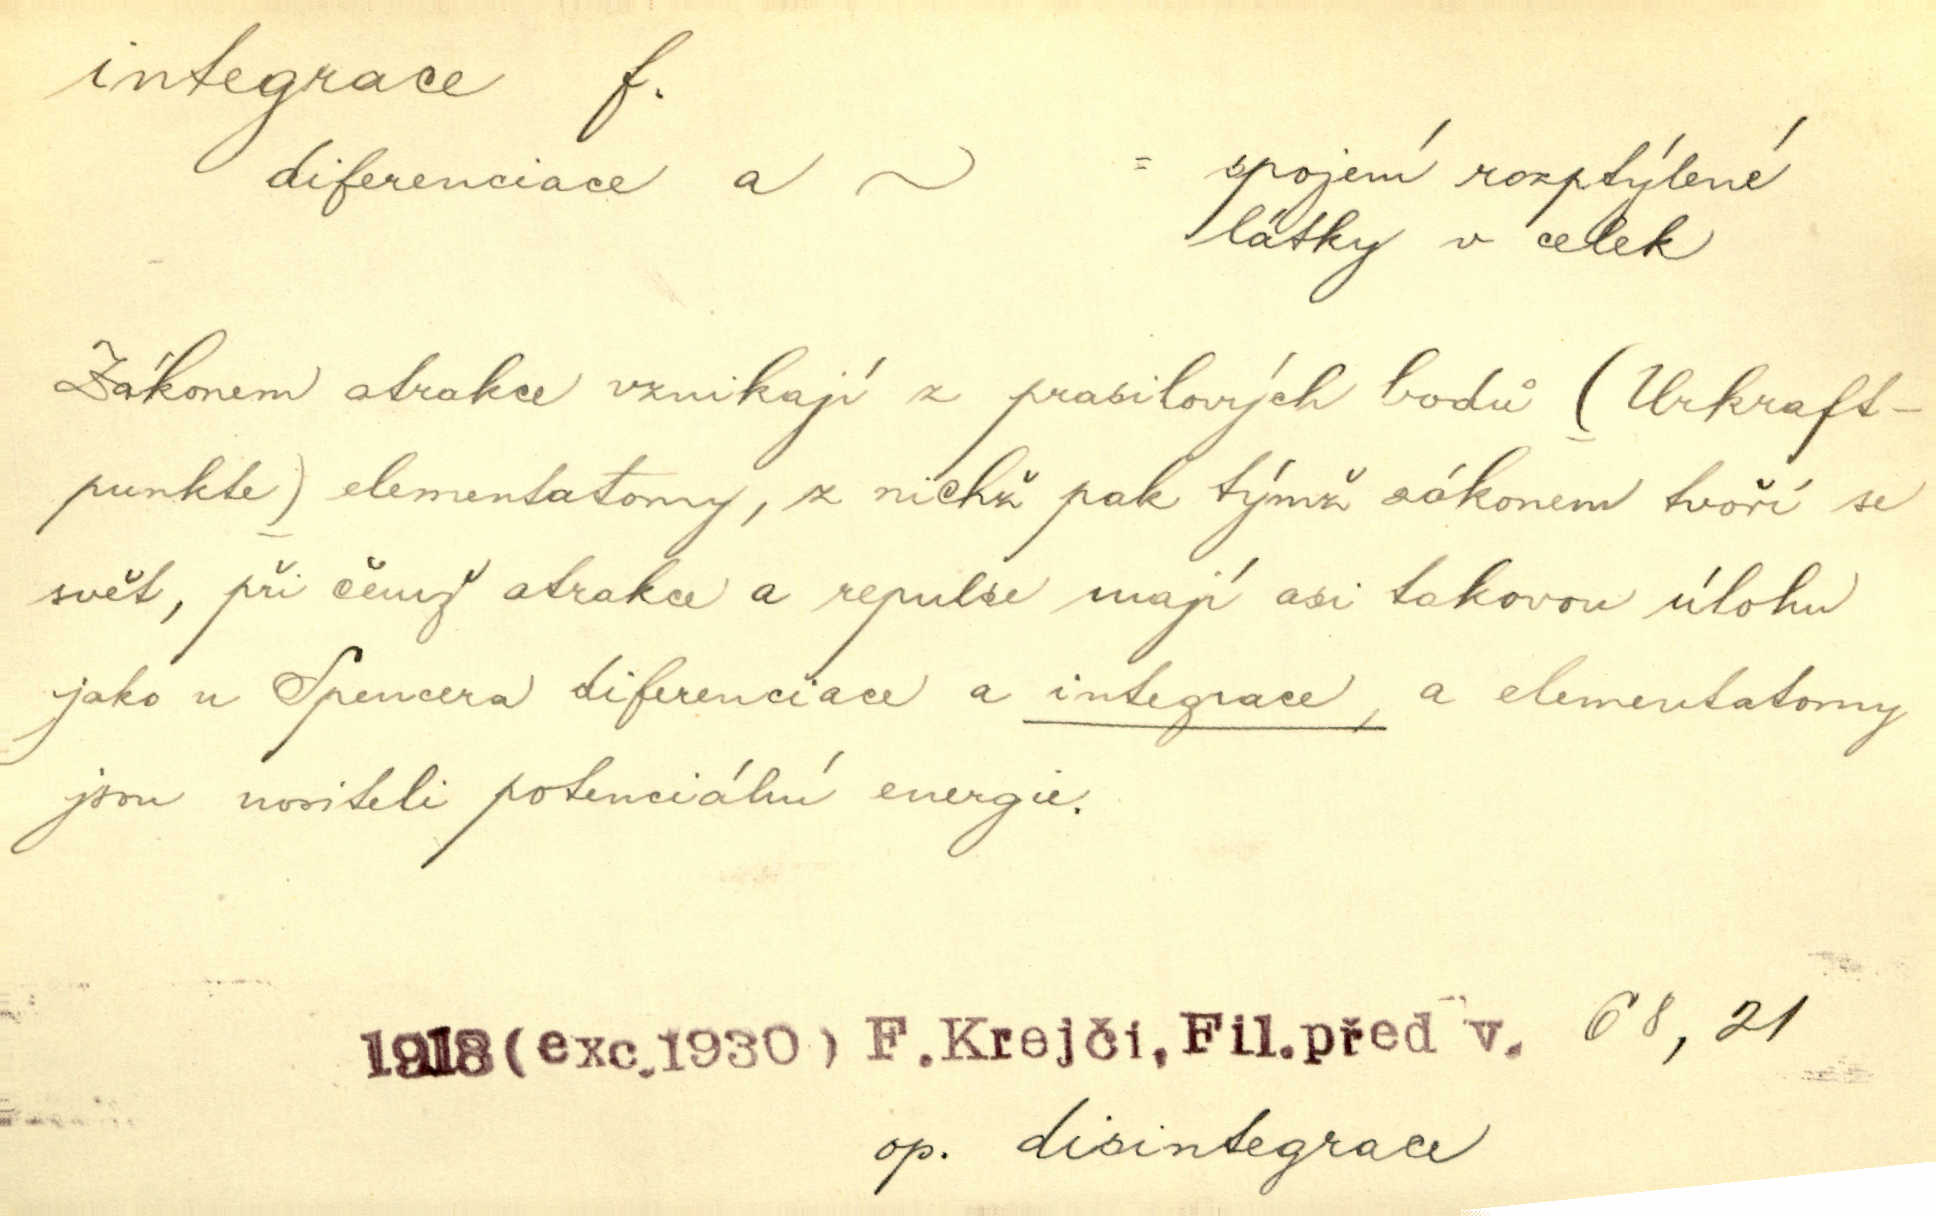 integrace f.
diferenciace a ~ = spojení rozptýlené
látky v celek
Zákonem atrakce vznikají z prasilových bodů (Urkraft-
punkte) elementatomy, z nichž pak týmž zákonem tvoří se
svět, při čemž atrakce a repulse mají asi takovou úlohu
jako u Spencera diferenciace a integrace, a elementatomy
jsou nositeli potenciální energie.
1918 (exc. 1930) F. Krejčí, Fil. před v. 68, 21
op. disintegrace